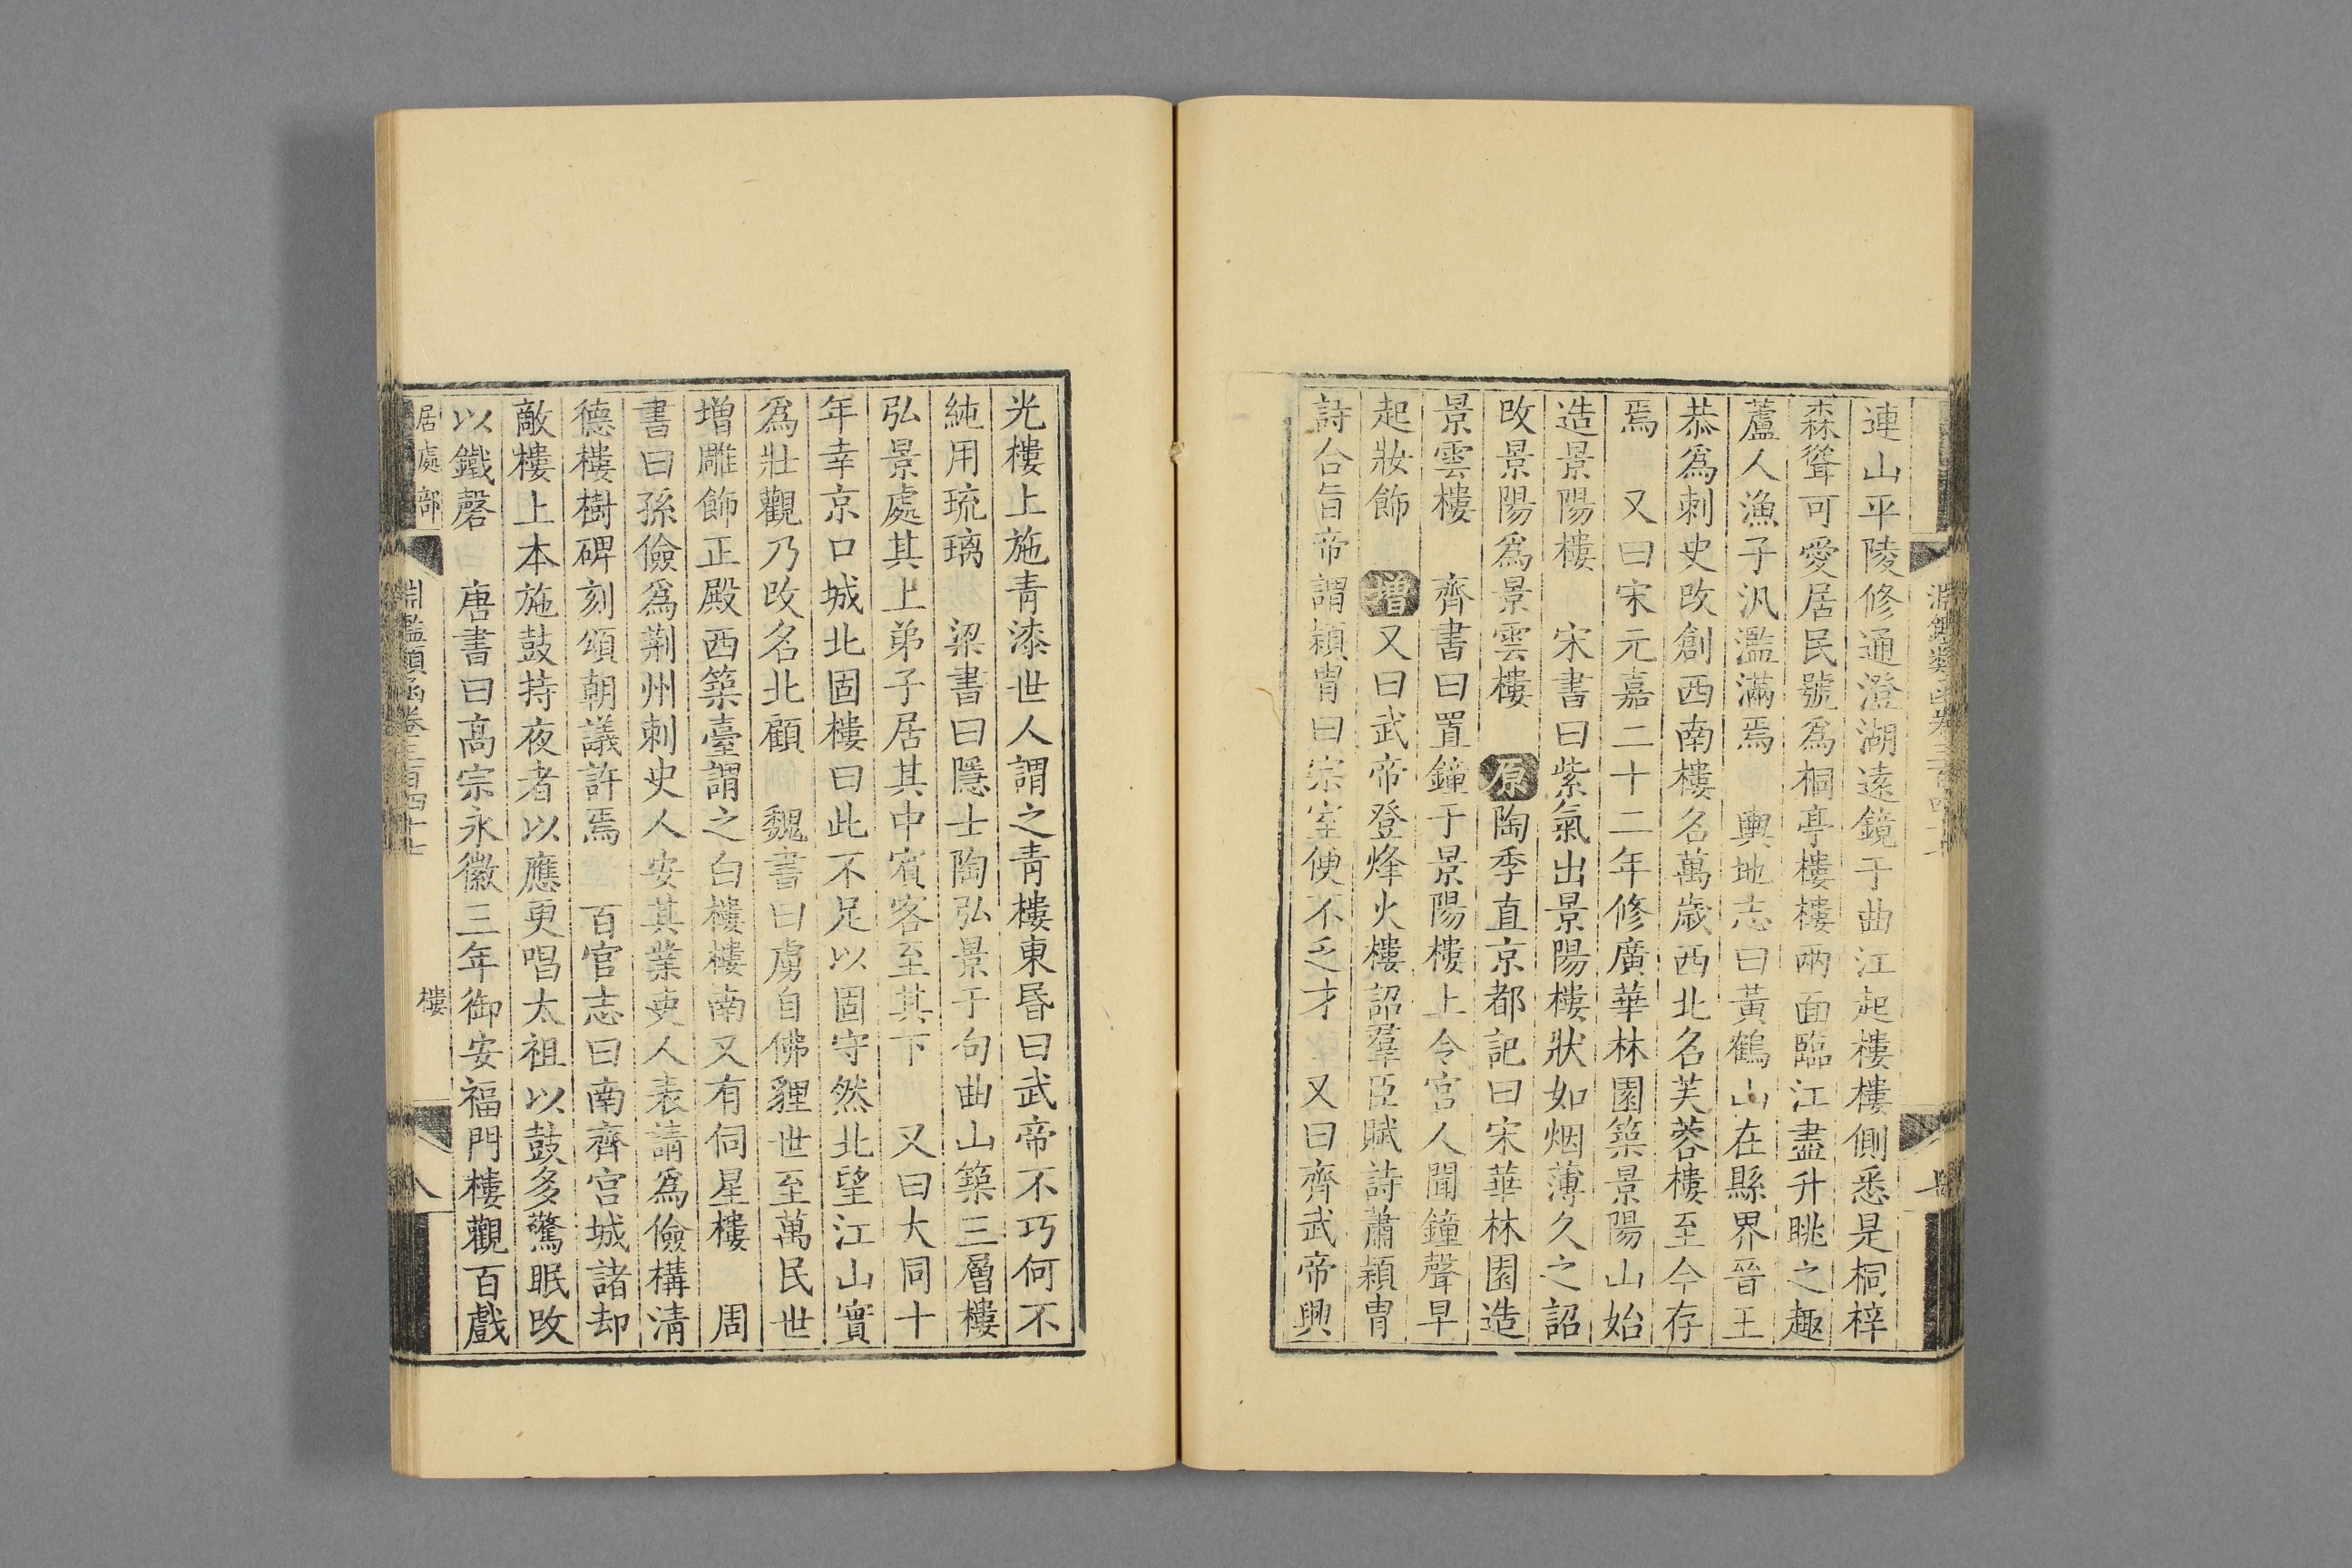 連山平陵修通澄湖遠鏡于曲江起樓樓側悉是桐梓
森聳可愛居民號爲桐亭樓樓兩面臨江盡升眺之趣
蘆人漁子汎濫滿焉　輿地志曰黃鶴山在縣界晉王
恭爲刺史改創西南樓名萬歲西北名芙蓉樓至今存
焉　又曰宋元嘉二十二年修廣華林園築景陽山始
造景陽樓　宋書曰紫氣出景陽樓狀如烟薄久之詔
改景陽爲景雲樓　原陶季直京都記曰宋華林園造
景雲樓　齊書曰置鐘于景陽樓上令宮人聞鐘聲早
起妝飾　增又曰武帝登烽火樓詔羣臣賦詩蕭穎胄
詩合旨帝謂穎胄曰宗室便不乏才　又曰齊武帝興
光樓上施青漆世人謂之青樓東昏曰武帝不巧何不
純用琉璃　梁書曰隱士陶弘景于句曲山築三層樓
弘景處其上弟子居其中賓客至其下　又曰大同十
年幸京口城北固樓曰此不足以固守然北望江山實
爲壯觀乃改名北顧　魏書曰虜自佛貍世至萬民世
增雕飾正殿西築臺謂之白樓樓南又有伺星樓　周
書曰孫儉爲荆州刺史人安其業吏人表請爲儉構清
德樓樹碑刻頌朝議許焉　百官志曰南齊宮城諸却
敵樓上本施鼓持夜者以應更唱太祖以鼓多驚眠改
以鐵磬　唐書曰高宗永徽三年御安福門樓觀百戲
居處部　淵鑑類函卷三百四十七　樓　八